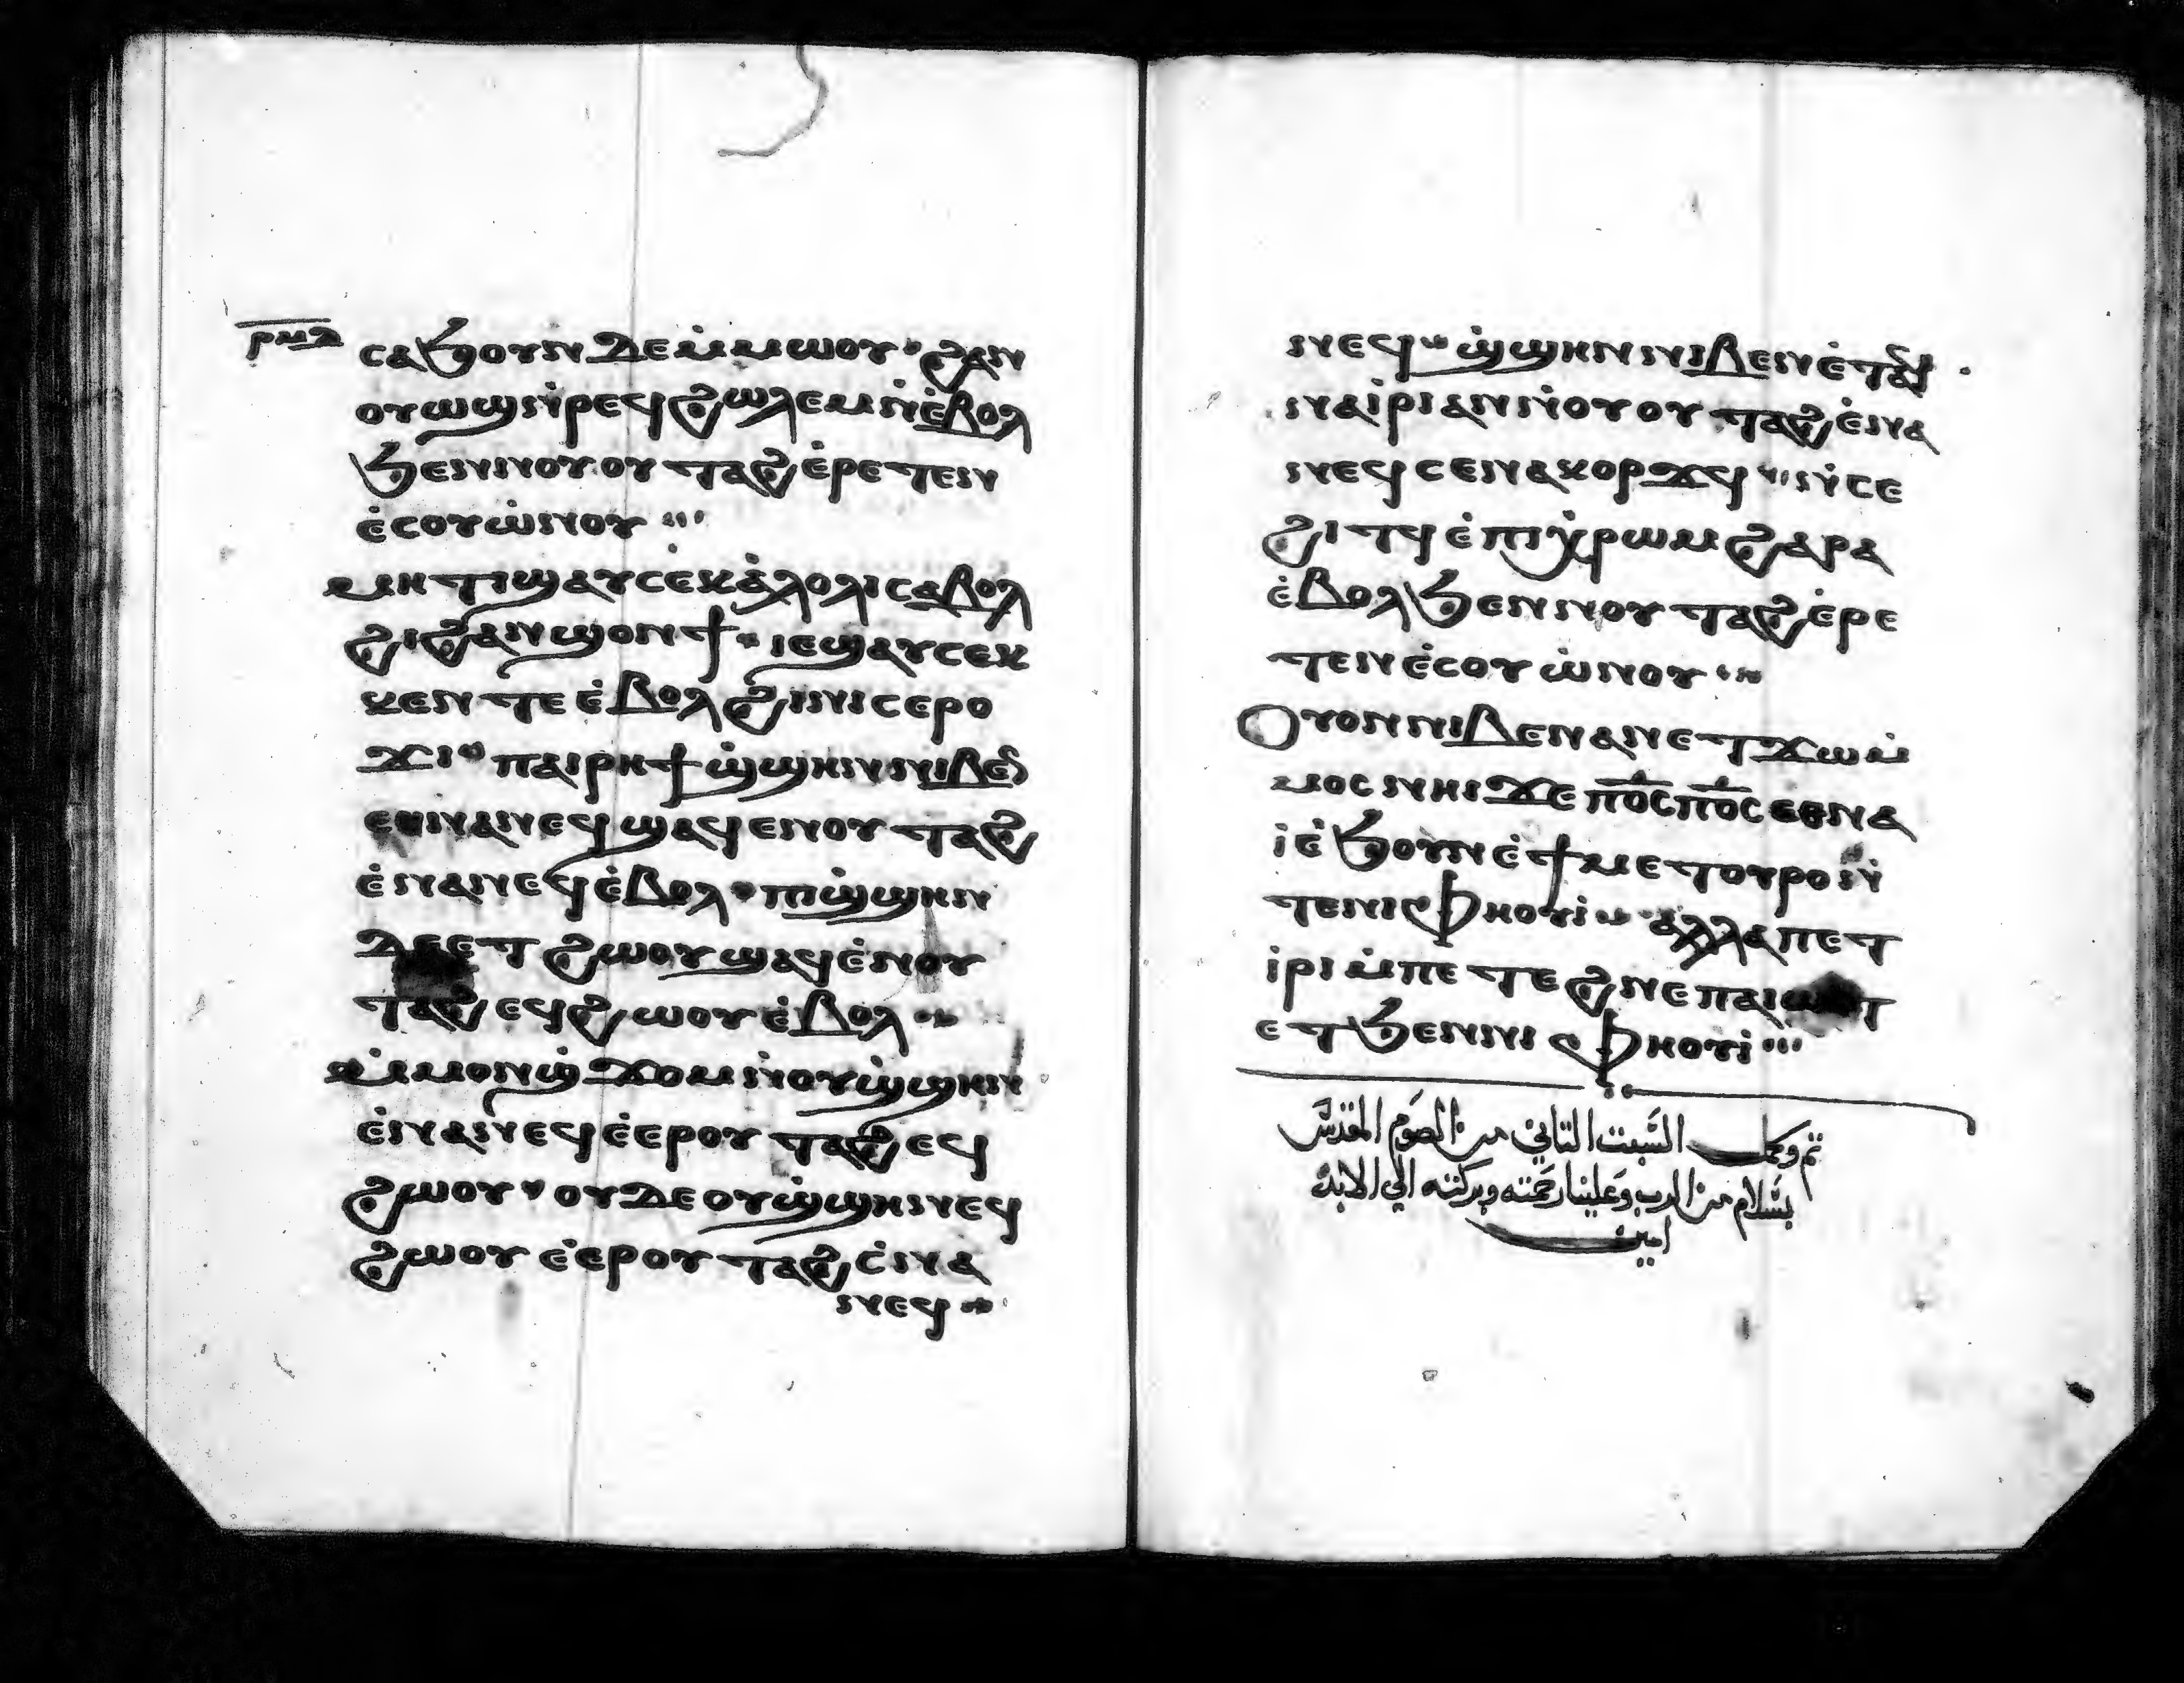 ⲣⲙⲇ
ⲥⲁϧⲟⲩⲛ ⲇⲉ ⲙ̇ⲙⲱⲟⲩ ϩⲁⲛ
ⲟⲩⲱⲛϣ ⲛ̇ⲣⲉϥϩⲱⲗⲉⲙ ⲛⲉ ⲉ̇ⲃⲟⲗ
ϧⲉⲛ ⲛⲟⲩⲟⲩⲧⲁϩ ⲉ̇ⲣⲉⲧⲉⲛ
ⲉ̇ⲥⲟⲩⲱ̇ⲛⲟⲩ
ⲙⲏⲧⲓ ϣⲁⲩⲥⲉⲕ ⲁ̇ⲗⲟⲗⲓ ⲥⲁⲃⲟⲗ
ϩⲓ ϩⲁⲛϣⲟⲛϯ ⲓⲉ ϣⲁⲩⲥⲉⲕ
ⲕⲉⲛⲧⲉ ⲉ̇ⲃⲟⲗ ϩⲓ ⲛⲓⲥⲉⲣⲟ
ϫⲓ ⲡⲁⲓⲣⲏϯ ϣ̇ϣⲏⲛ ⲛⲓⲃⲉⲛ
ⲉⲑⲛⲁⲛⲉϥ ϣⲁϥⲉⲛⲟⲩⲧⲁϩ
ⲉ̇ⲛⲁⲛⲉϥ ⲉ̇ⲃⲟⲗ ⲡⲓϣ̇ϣⲏⲛ
ⲇⲉ ⲉⲧϩⲱⲟⲩ ϣⲁϥⲉ̇ⲛⲟⲩ
ⲧⲁϩ ⲉϥϩⲱⲟⲩ ⲉ̇ⲃⲟⲗ
ⲙ̇ⲙⲟⲛ ϣ̇ϫⲟⲙ ⲛ̇ⲟⲩϣ̇ϣⲏⲛ
ⲉ̇ⲛⲁⲛⲉϥ ⲉ̇ⲉⲣⲟⲩⲧⲁϩ ⲉϥ
ϩⲱⲟⲩ ⲟⲩⲇⲉ ⲟⲩϣ̇ϣⲏⲛ ⲉϥ
ϩⲱⲟⲩ ⲉ̇ⲉⲣⲟⲩⲧⲁϩ ⲉ̇ⲛⲁ
ⲛⲉϥ
ⲛⲉϥ ϣ̇ϣⲏⲛ ⲛⲓⲃⲉⲛ ⲉ̇ⲧⲉ
ⲛⲁⲓ̇ⲣⲓ ⲁⲛ ⲛ̇ⲟⲩⲟⲩⲧⲁϩ ⲉ̇ⲛⲁ
ⲛⲉϥ ⲥⲉⲛⲁⲕⲟⲣϫϥ ⲛ̇ⲥⲉ
ϩⲓⲧϥ ⲉ̇ⲡⲓⲭ̇ⲣⲱⲙ ϩⲁⲣⲁ
ⲉ̇ⲃⲟⲗ ϧⲉⲛ ⲛⲟⲩⲧⲁϩ ⲉ̇ⲣⲉ
ⲧⲉⲛⲉ̇ⲥⲟⲩⲱ̇ⲛⲟⲩ
Ⲟⲩⲟⲛ ⲛⲓⲃⲉⲛ ⲁⲛ ⲉⲧϫⲱ ⲙ̇
ⲙⲟⲥ ⲛⲏⲓ ϫⲉ ⲡ̅ⲟ̅ⲥ̅ ⲡ̅ⲟ̅ⲥ̅ ⲉⲑⲛⲁ
ⲓ̇ ⲉ̇ϧⲟⲩⲛ ⲉ̇ϯⲙⲉⲧⲟⲩⲣⲟ ⲛ̇
ⲧⲉ ⲛⲓⲫⲏⲟⲩⲓ̇ ⲁⲗⲗⲁ ⲡⲉⲧ
ⲓ̇ⲣⲓ ⲙ̇ⲡⲉⲧⲉϩⲛⲉ ⲡⲁⲓⲱⲧ
ⲉⲧϧⲉⲛ ⲛⲓⲫⲏⲟⲩⲓ̇
تم وكمل السبت التاني من الصوم المقدس
بسلام من الرب وعلينا رحمته وبركته الي الابد
امين